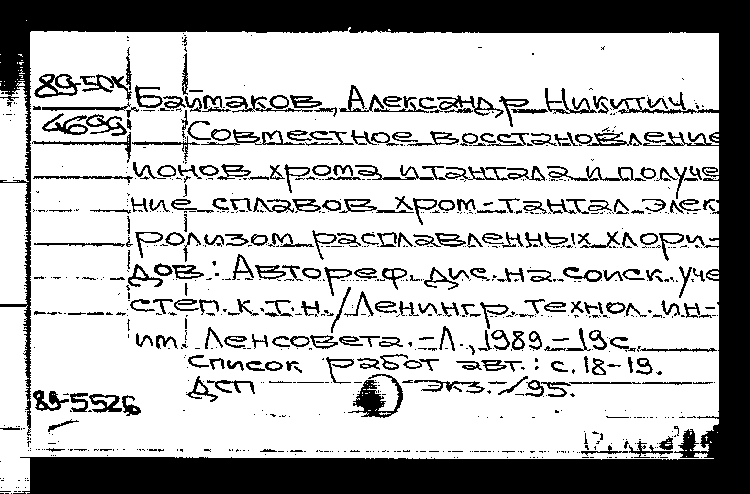 89-50к
Баймаков, Александр Никитич.
4699
Совместное восстановление
ионов хрома и тантала и получе
ние сплавов хром-тантал элек
ролизом расплавленных хлори-
дов: Автореф. дис. на соиск. уче
степ. к.т.н./Ленингр. технол. ин-
им. Ленсовета. -Л., 1989. - 19с.
Список работ авт.: с. 18-19.
ДСП экз. 95.
89-552б